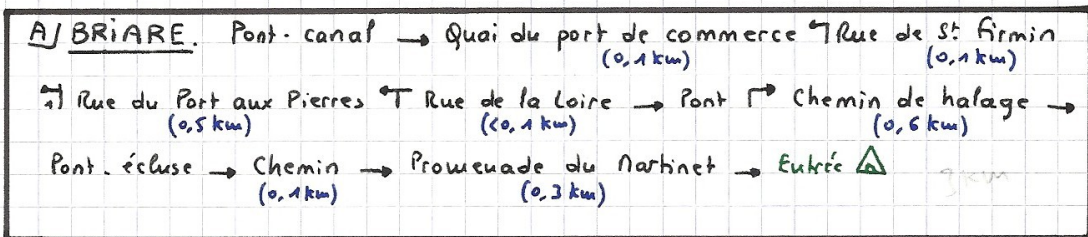 A/ BRIARE. Pont-canal → Quai du port de commerce ↰ Rue de St Firmin
(0,1 km) (0,1 km)
↰ Rue du Port aux Pierres ↰ Rue de la Loire → Pont ↱ Chemin de halage →
(0,5 km) (<0,1 km) (0,6 km)
Pont-écluse → Chemin → Promenade du Martinet → Entrée
(0,1 km) (0,3 km)